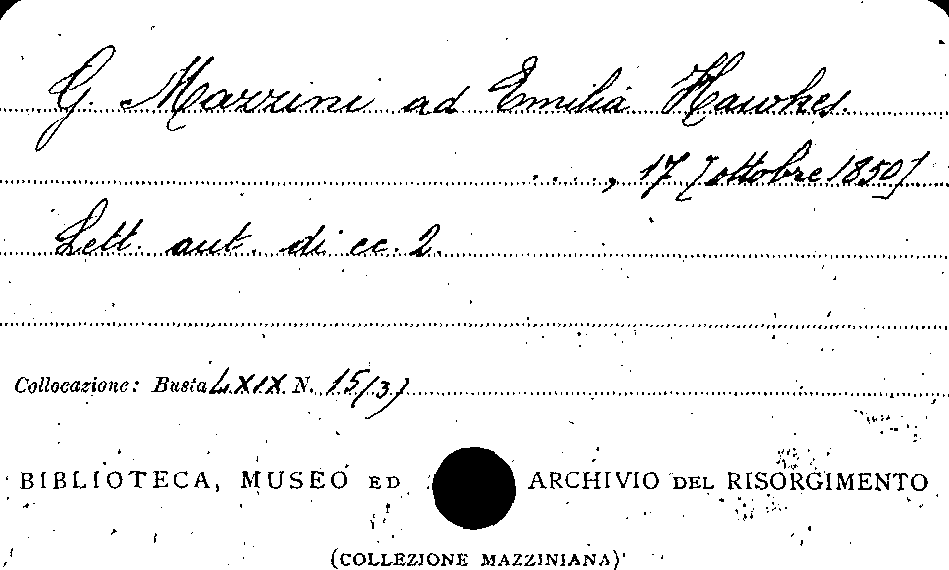 G. Mazzini ad Emilia Hawkes.
...., 17 [ottobre 1850]
Lett. aut. di cc. 2.
Collocazione: Busta LXIX N. 15(3)
BIBLIOTECA, MUSEO ED ARCHIVIO DEL RISORGIMENTO
(COLLEZIONE MAZZINIANA)